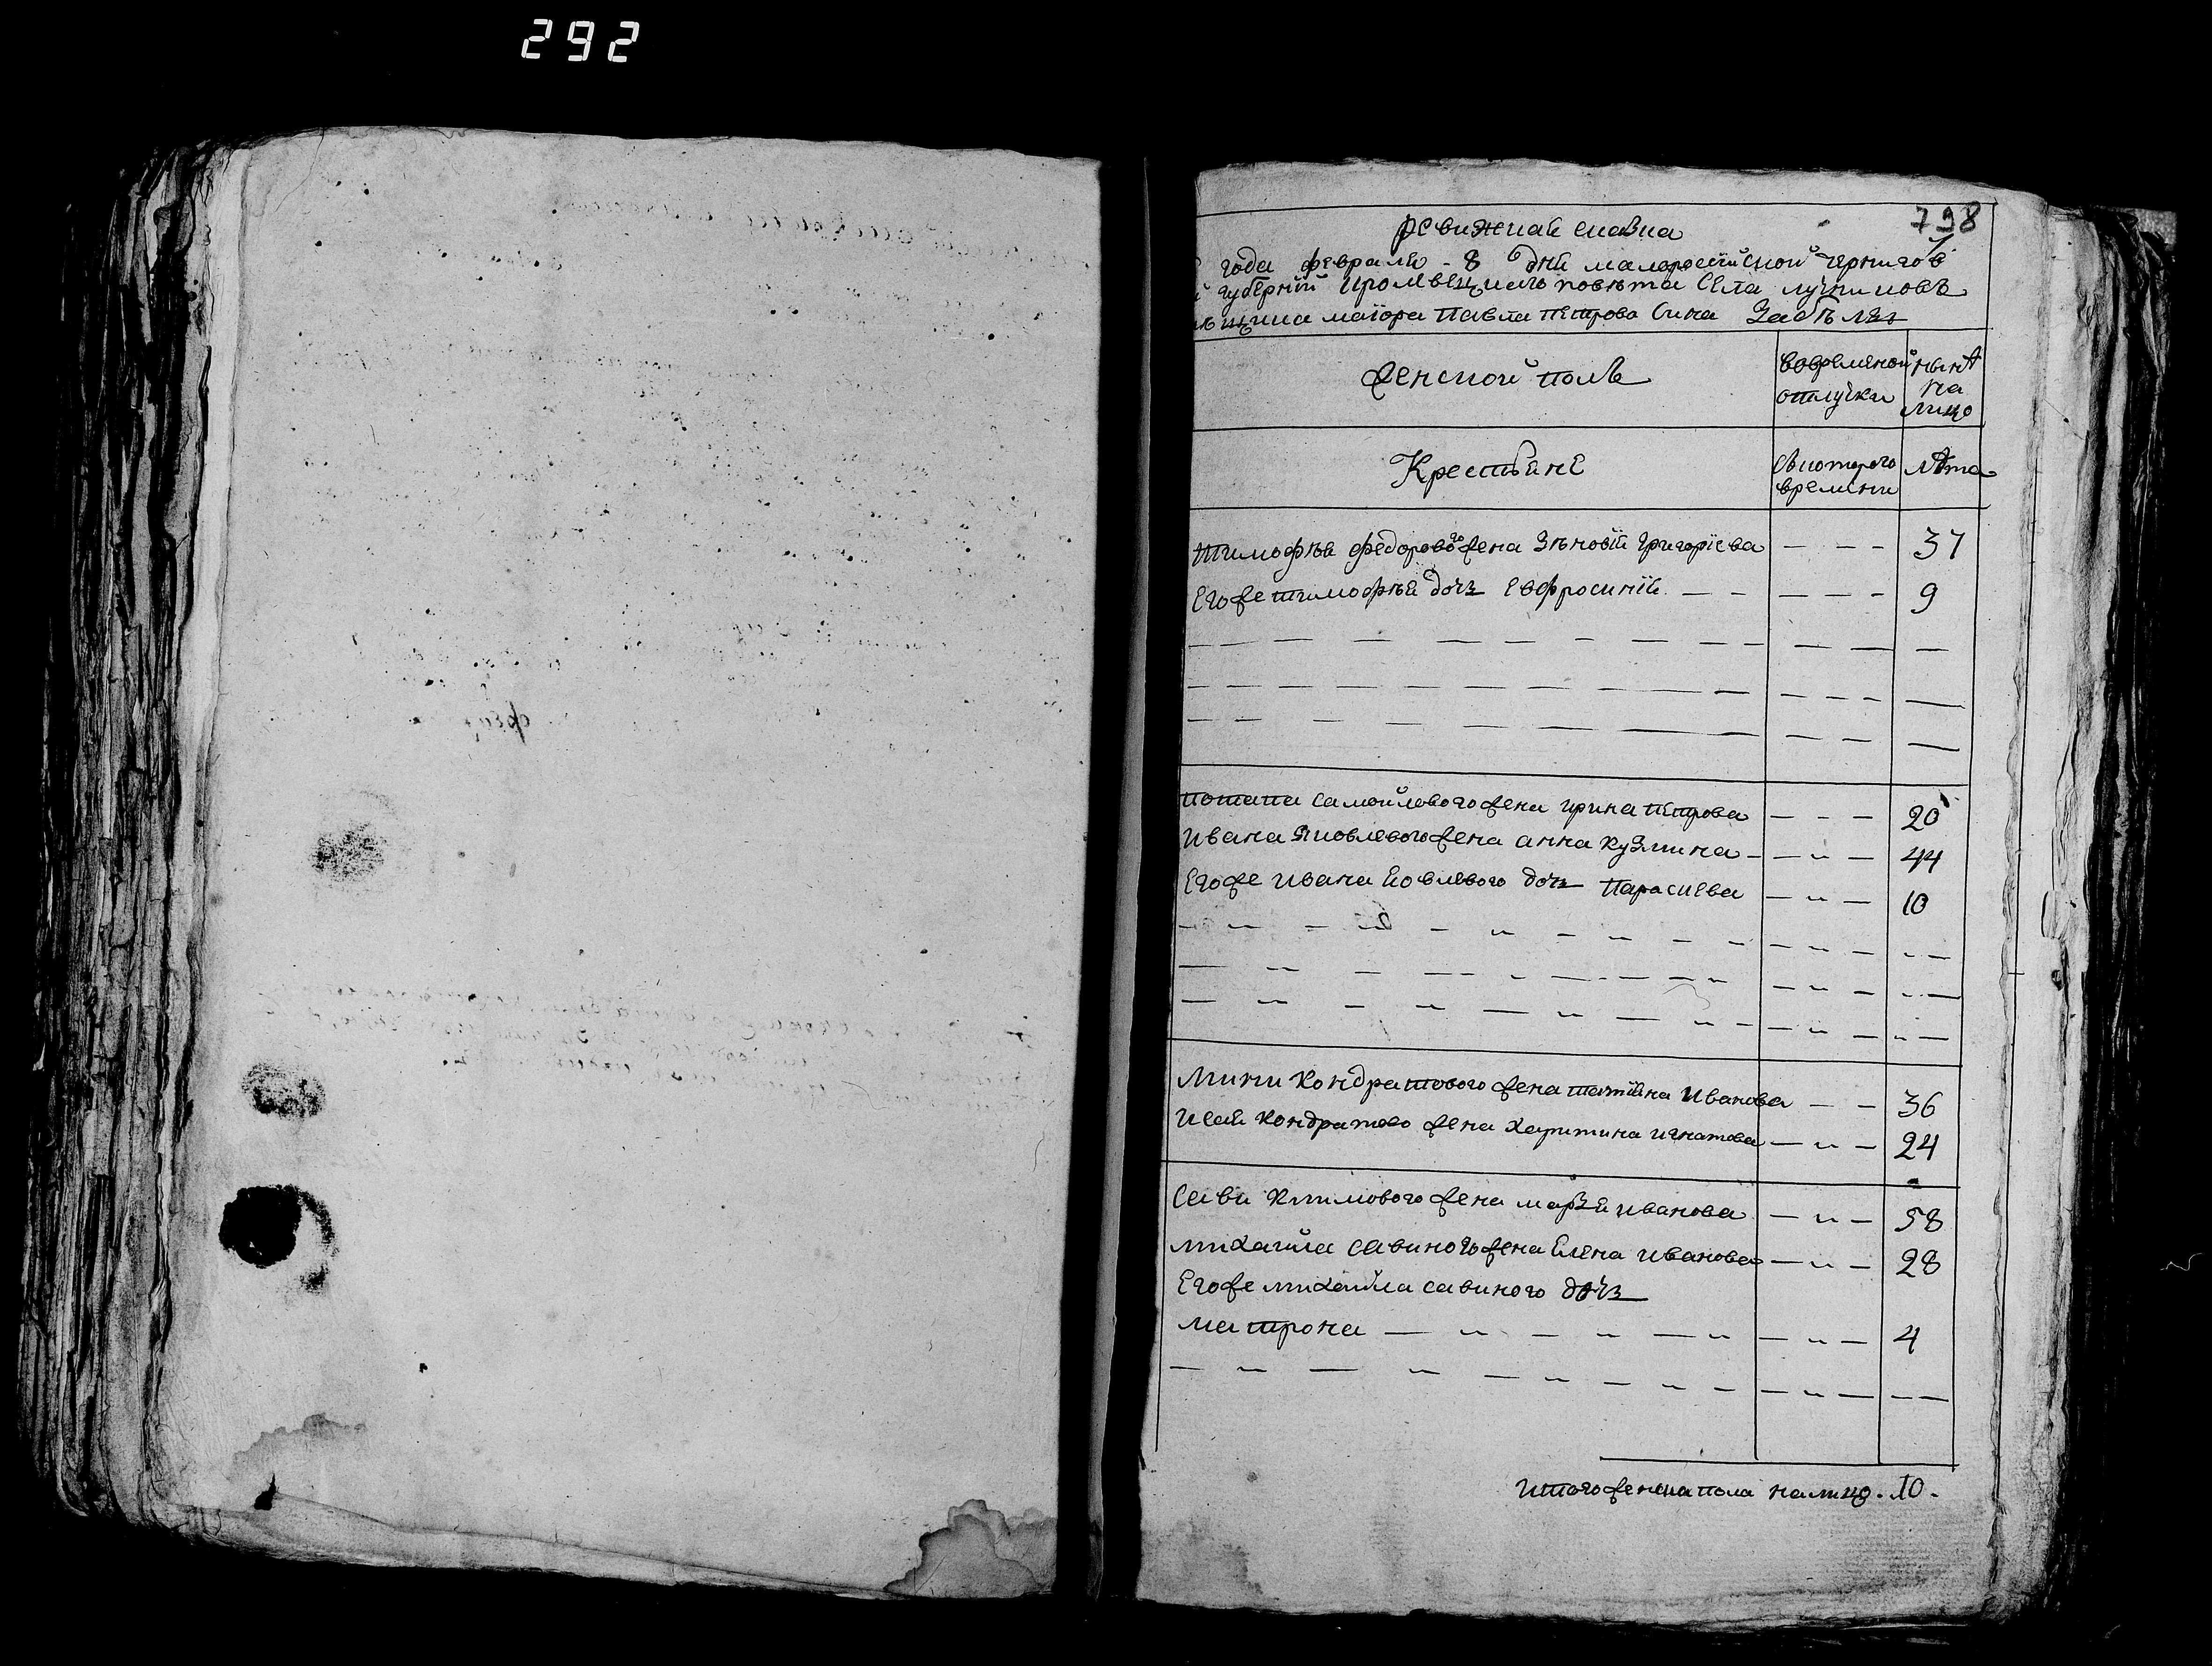 292
798
ревижная сказка
года февраля 8 дня малороссийской чернигов
губернїи кролевецкаго повѣта села лучниковъ
маїора павла петрова сина Забѣлы
женской полъ
вовременной отлучки
нынѣ на лицо
Крестьяне
скоторого времени
лѣта
тимофѣя федорового жена зѣновїя григорїева — — — 37
Егоже тимофѣя дочь Евфросинїя — — — — — 9
потапа самойлового жена ирина петрова — — — 20
ивана яковлевого жена анна кузмина — — — 44
Егоже ивана яковлевого дочь параскева — — — 10
мини кондратового жена татїяна иванова — — 36
исая кондратово жена харитина игнатова — — — 24
савы климового жена марья иванова — — — 58
михайла савиного жена Елена иванова — — — 28
Егоже михайла савиного дочь
матрона — — — — — — — — — 4
итого женска пола налицо. 10.